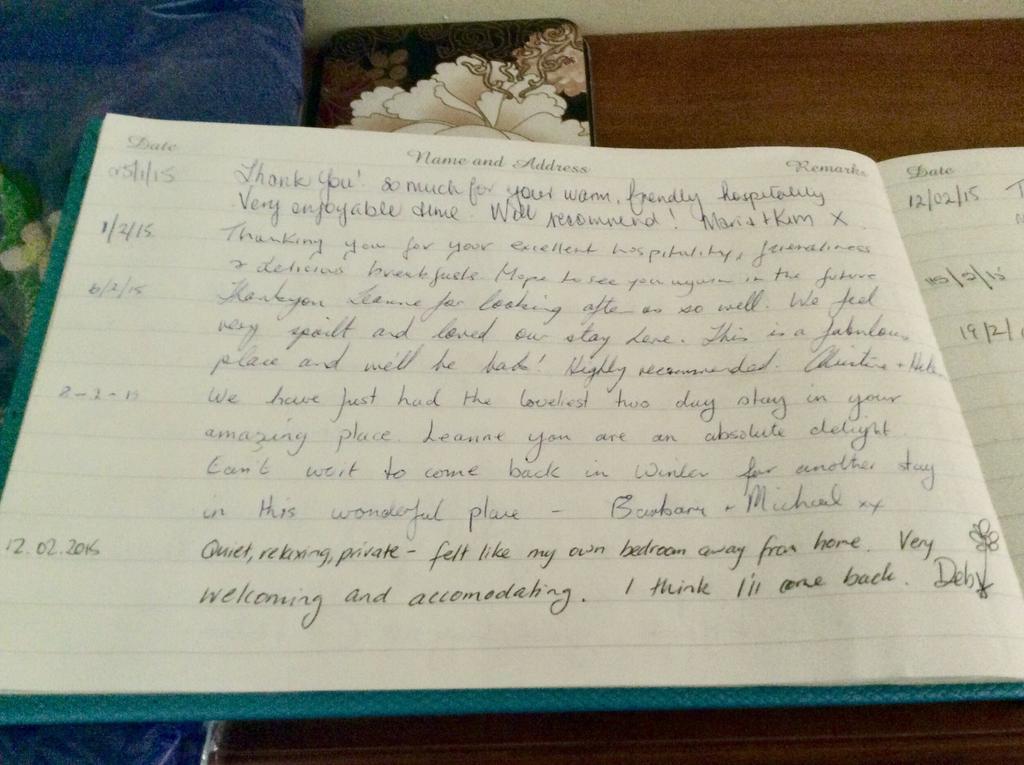 Date Name and Address Remarks
25/1/15 Thank you! so much for your warm, friendly hospitality
Very enjoyable time. Will recommend! Maria + Kim X
1/2/15 Thanking you for your excellent hospitality, friendliness
& delicious breakfasts. Hope to see you again in the future
6/2/15 Thankyou Leanne for looking after us so well. We feel
very spoilt and loved our stay here. This is a fabulous
place and we'll be back! Highly recommended. Christine +
8-2-15 We have just had the loveliest two day stay in your
amazing place. Leanne you are an absolute delight
Can't wait to come back in Winter for another stay
in this wonderful place - Barbara + Michael xx
12.02.2015 Quiet, relaxing, private - felt like my own bedroom away from home. Very
welcoming and accomodating. I think I'll come back. Deb
Date
12/02/15
15/2/15
19/2/